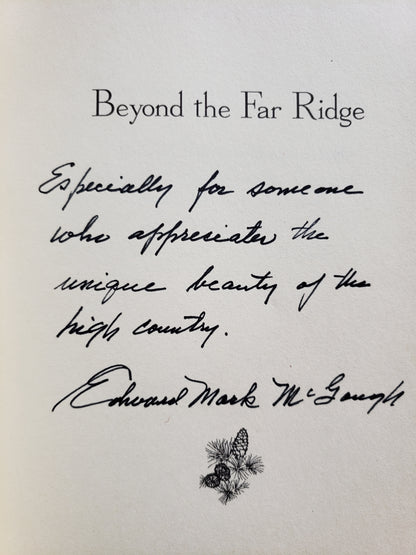 Beyond the Far Ridge
Especially for someone
who appreciates the
unique beauty of the
high country.
Edward Mark McGough